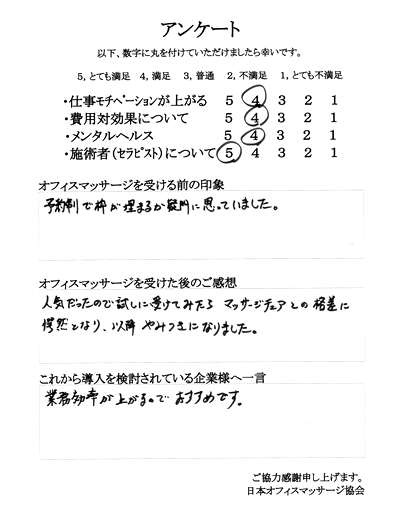 アンケート
以下、数字に丸を付けていただけましたら幸いです。
5, とても満足 4, 満足 3, 普通 2, 不満足 1, とても不満足
・仕事モチベーションが上がる 5 4 3 2 1
・費用対効果について 5 4 3 2 1
・メンタルヘルス 5 4 3 2 1
・施術者(セラピスト)について 5 4 3 2 1
オフィスマッサージを受ける前の印象
予約制で枠が埋まるか疑問に思っていました。
オフィスマッサージを受けた後のご感想
人気だったので試しに受けてみたら マッサージチェアとの格差に
愕然となり、以降 やみつきになりました。
これから導入を検討されている企業様へ一言
業務効率が上がるので おすすめです。
ご協力感謝申し上げます。
日本オフィスマッサージ協会